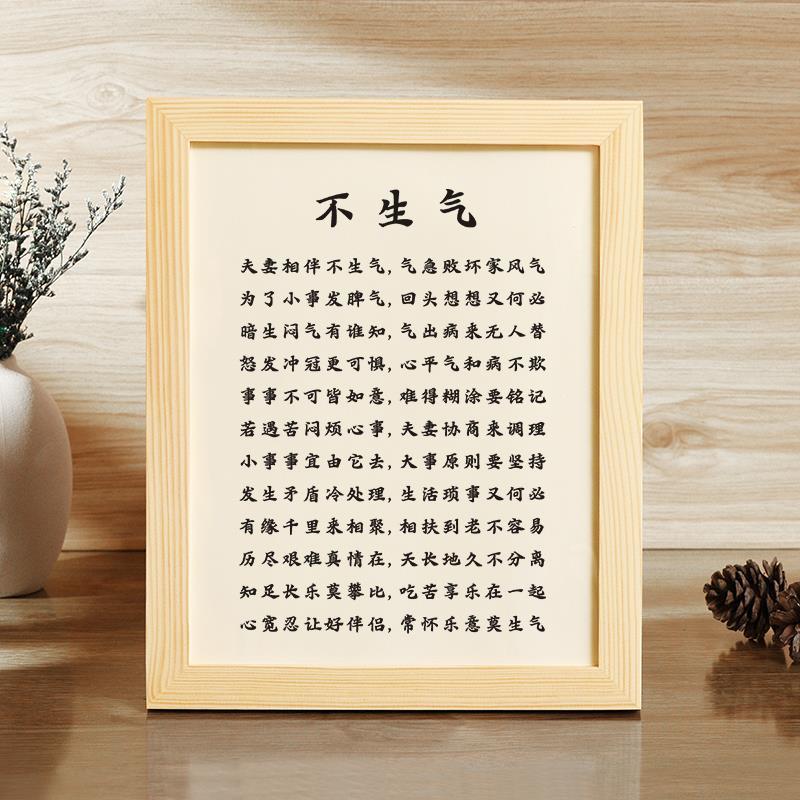 不生气
夫妻相伴不生气,气急败坏家风气
为了小事发脾气,回头想想又何必
暗生闷气有谁知,气出病来无人替
怒发冲冠更可惧,心平气和病不欺
事事不可皆如意,难得糊涂要铭记
若遇苦闷烦心事,夫妻协商来调理
小事事宜由它去,大事原则要坚持
发生矛盾冷处理,生活琐事又何必
有缘千里来相聚,相扶到老不容易
历尽艰难真情在,天长地久不分离
知足长乐莫攀比,吃苦享乐在一起
心宽忍让好伴侣,常怀乐意莫生气